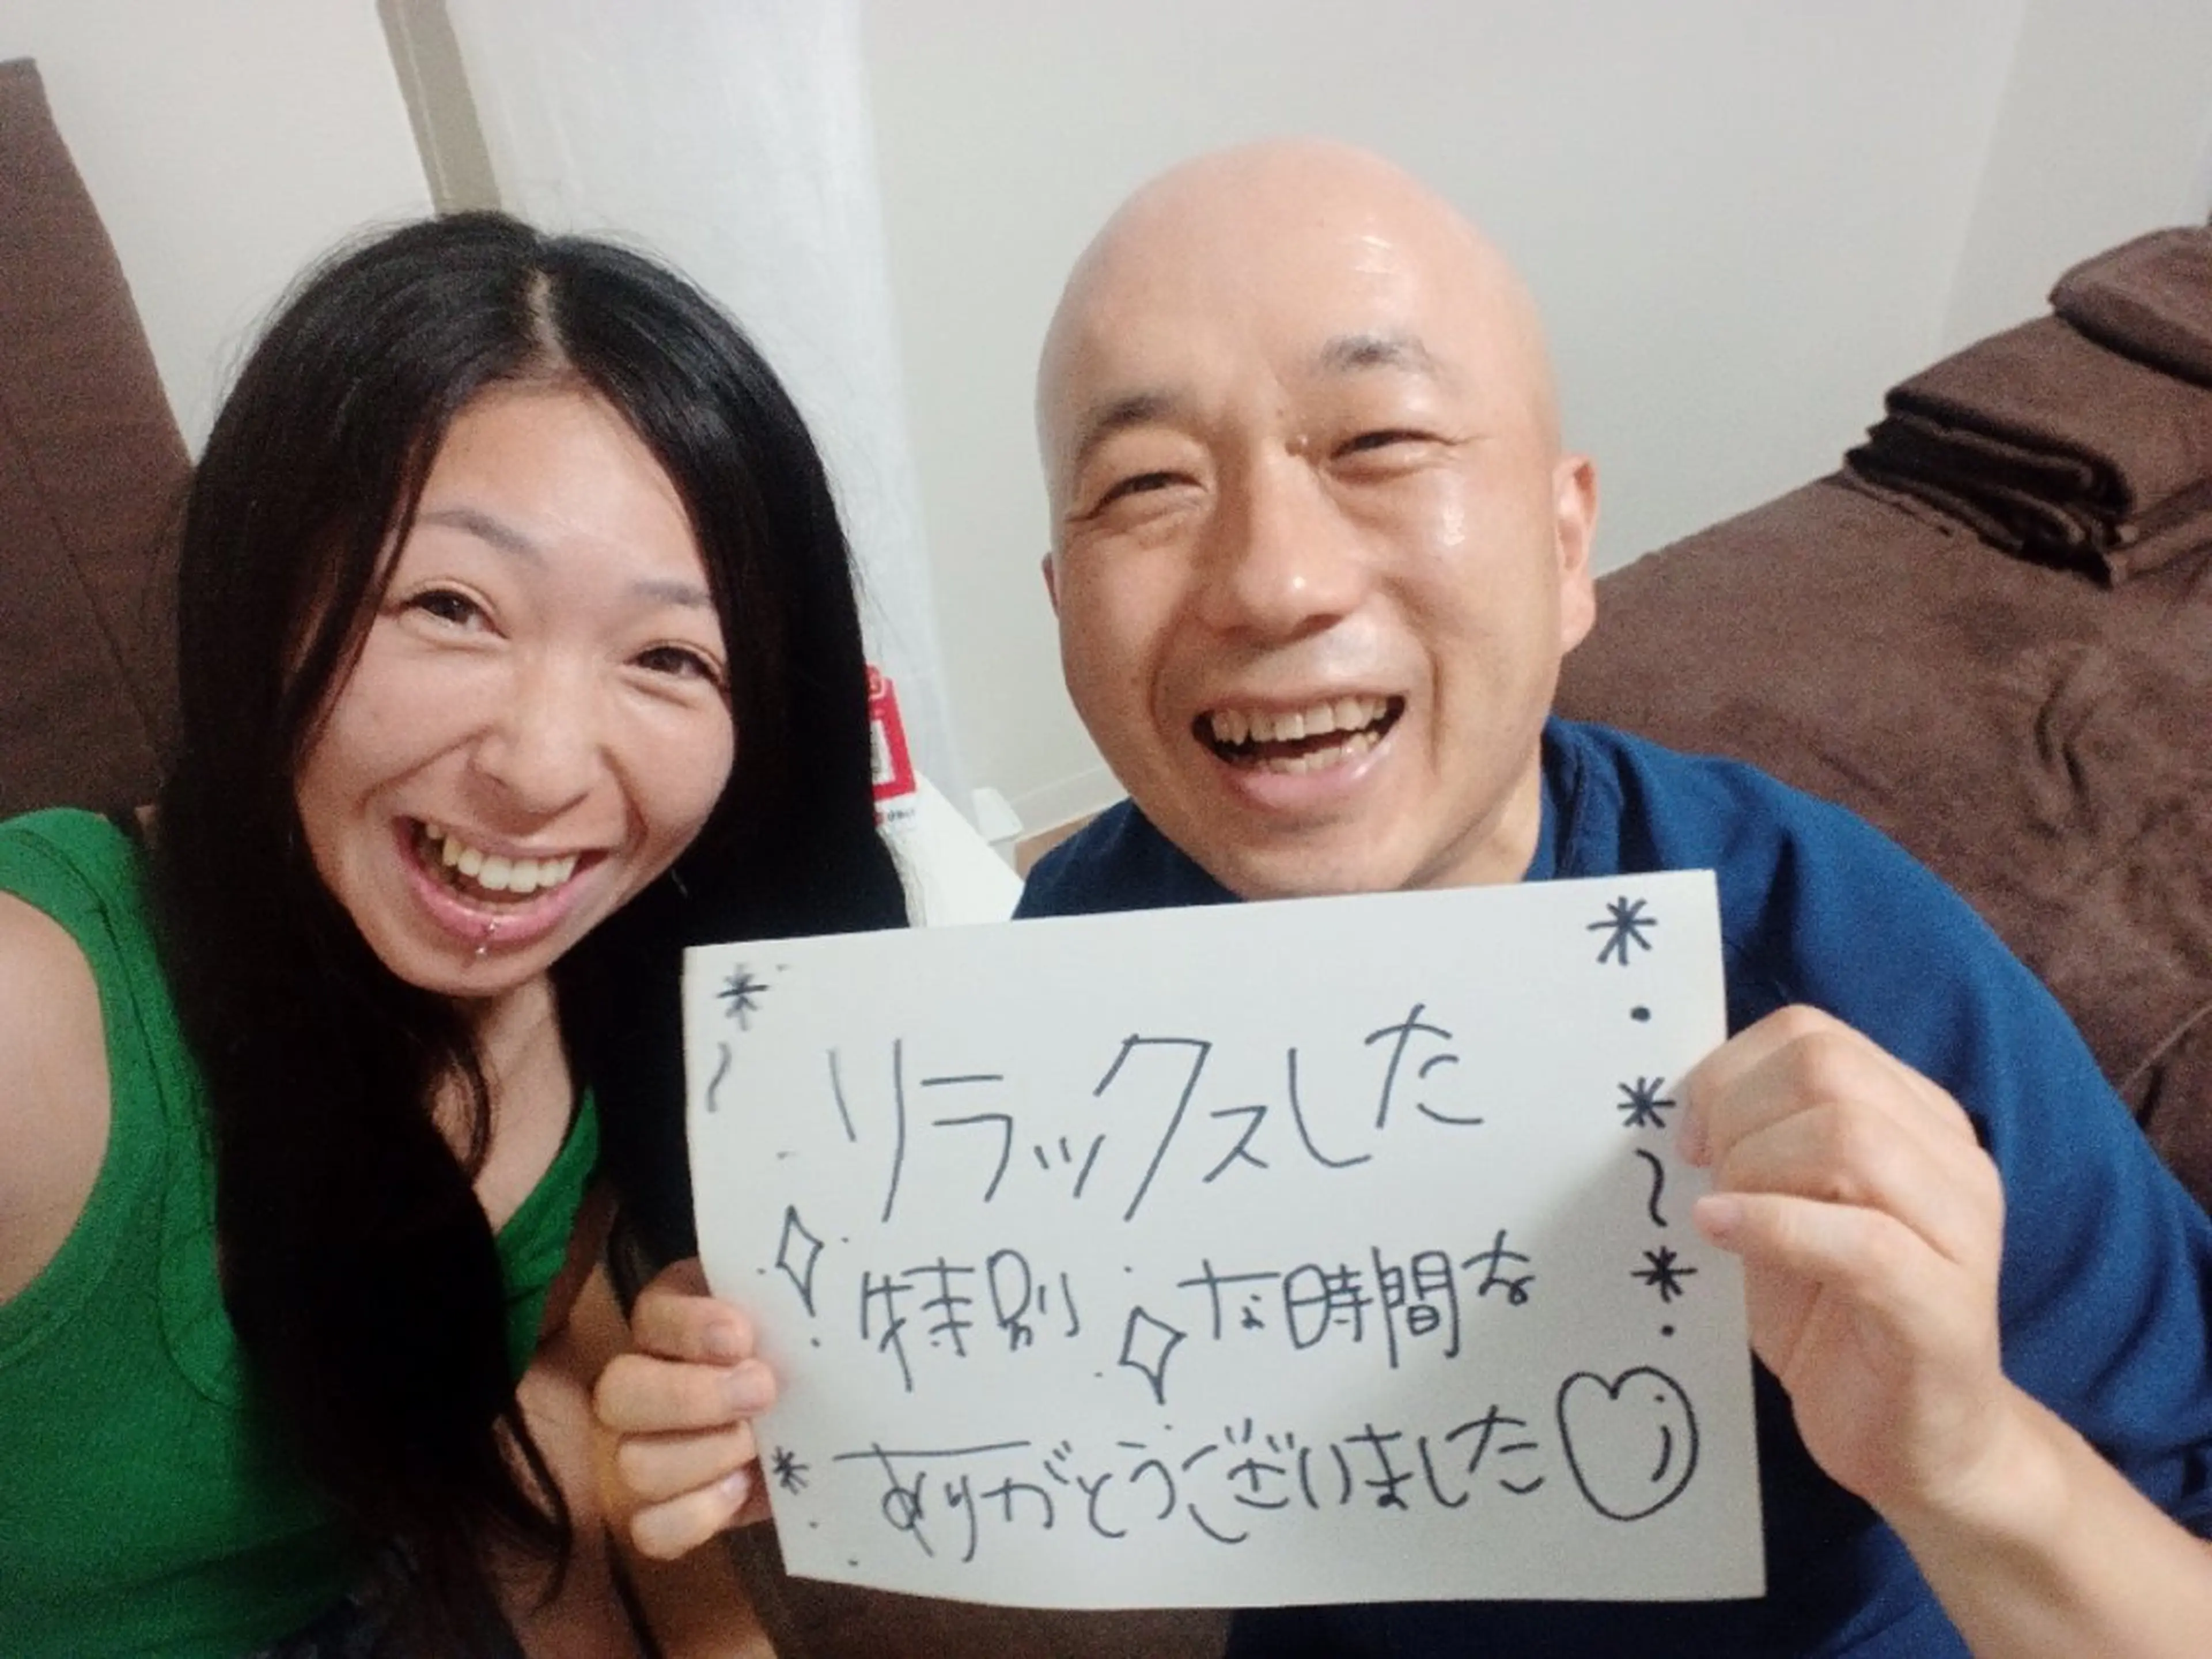 リラックスした
特別な時間を
ありがとうございました